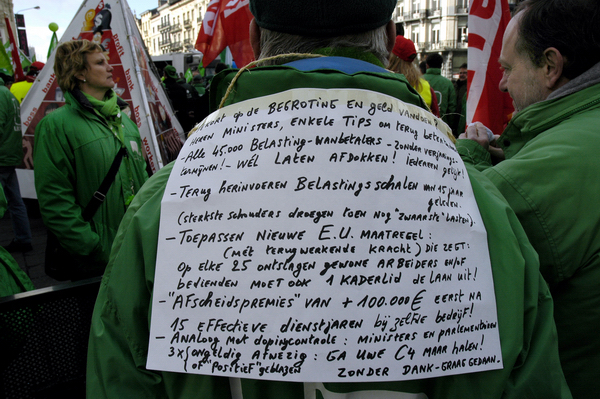 op de BEGROTING EN geld van
HEREN MINISTERS, ENKELE TIPS OM TERUG
- Alle 45.000 BELASTING-WANBETALERS - ZONDER
! - WÉL LATEN AFDOKKEN! IEDEREEN GELIJK!
- TERUG HERINVOEREN BELASTINGSSCHALEN VAN 15 JAAR
GELEDEN.
(STERKSTE SCHOUDERS DROEGEN TOEN NOG "ZWAARSTE" LASTEN).
- TOEPASSEN NIEUWE E.U. MAATREGEL:
(MÉT TERUGWERKENDE KRACHT) DIE ZEGT:
OP ELKE 25 ONTSLAGEN GEWONE ARBEIDERS EN/OF
BEDIENDEN MOET OOK 1 KADERLID DE LAAN UIT!
- "AFSCHEIDSPREMIES" VAN + 100.000 € EERST NA
15 EFFECTIEVE DIENSTJAREN BIJ ZELFDE BEDRIJF!
- ANALOOG MET DOPINGCONTROLE: MINISTERS EN PARLEMENTAIREN
3x ONGELDIG AFWEZIG: GA UWE C4 MAAR HALEN!
(OF "POSITIEF" GEBLAZEN ZONDER DANK - GRAAG GEDAAN.